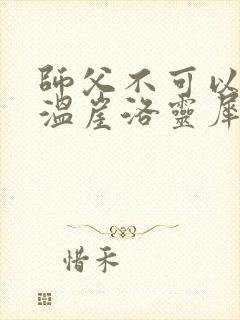 師父不可以
溫崖洛靈犀
惜禾